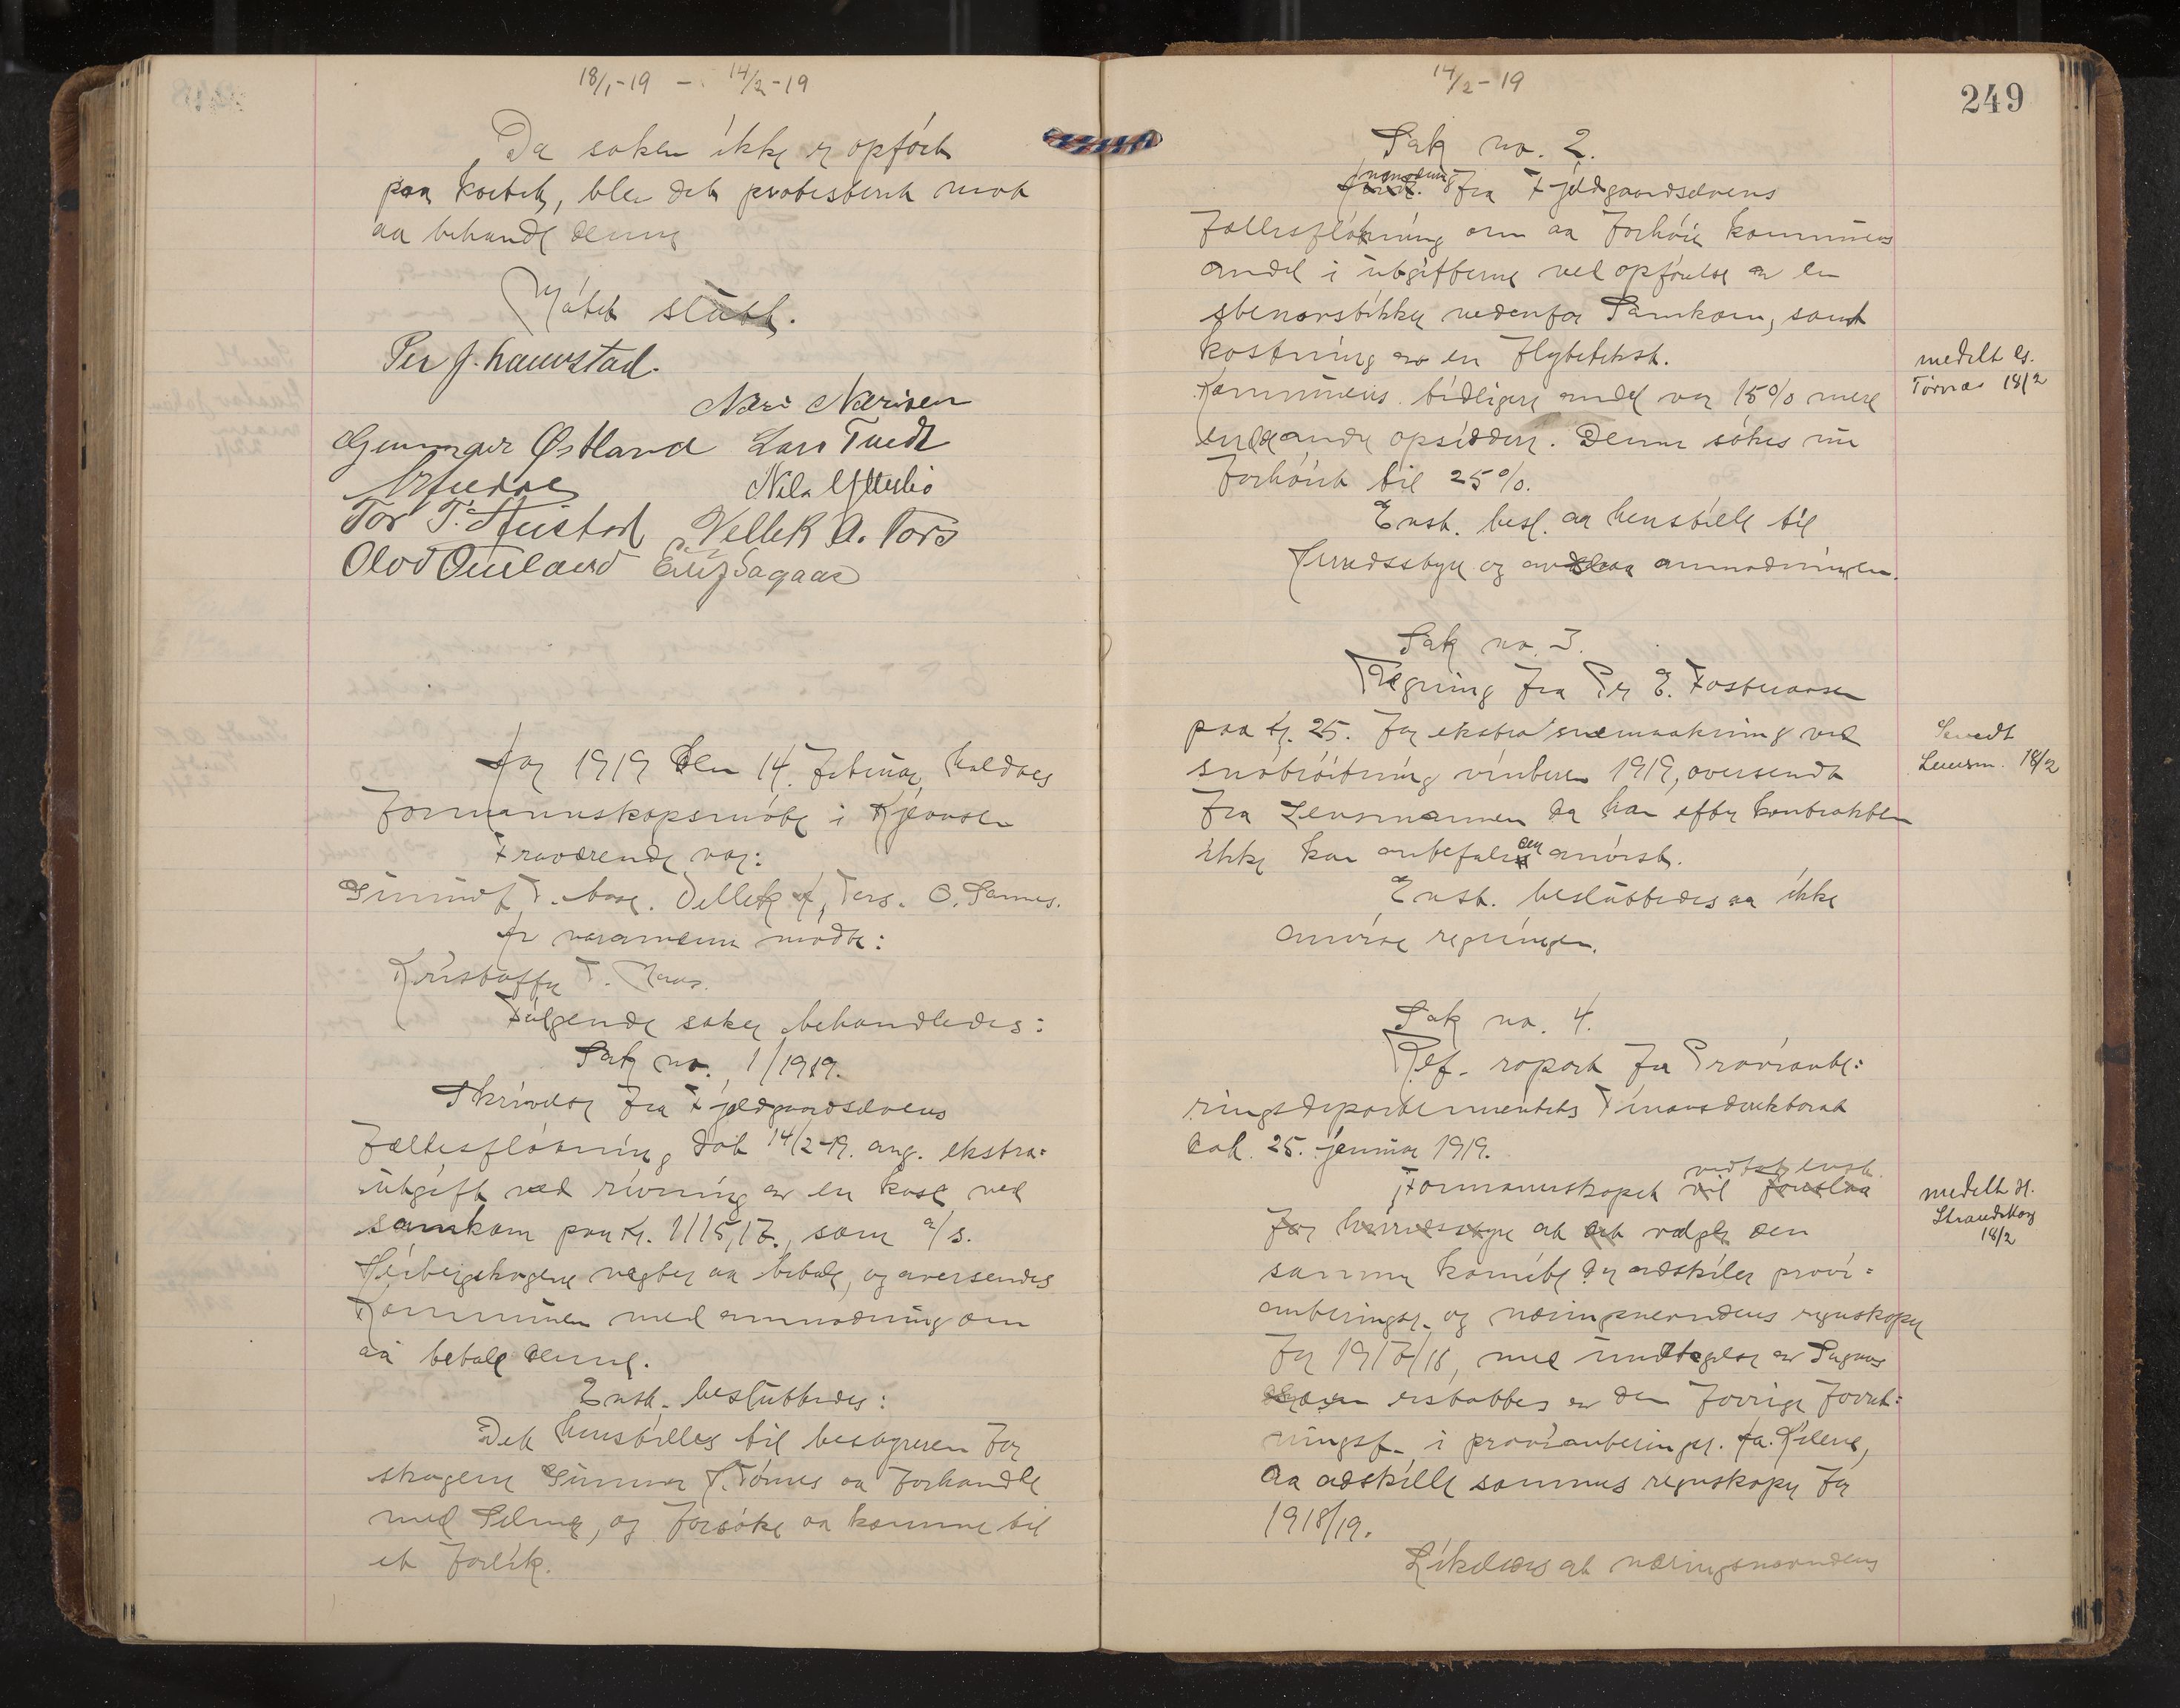 18/1-19 - 14/2-19
Da saken ikke er opført
paa kortet, blev det protestert mot
aa behandle denne
Møtet slutt.
Per J. Lauvstad.
Næri Nærisen
Gunnar Østland Lars Tvedt
Nils Ytterbø
Tor T.
Vellek A. Fors
Olav Omland
Aar 1919 den 14. februar holdtes
formannskapsmøte i Kjeonsen
Fraværende var:
Gunnulf T. Vellek A. Fors. O. Sannes.
Av varamenn møtte:
Kristoffer T.
Følgende saker behandledes:
Sak no. 1/1919.
Skrivelse fra Fjeldgaardselvens
Fællesfløtning dat 14/2-19. ang. ekstra=
utgift ved rivning av en kase ved
samkom paa kr. 1115,17., som a/s.
vægter aa betale, og oversendes
Kommunen med anmodning om
aa betale denne.
Enst. besluttedes:
Det henstilles til bestyreren for
skogene Gunnar Tørnes aa forhandle
med Selmer, og forsøke aa komme til
et forlik.
14/2-19
249
Sak no. 2.
Fra Fjeldgaardselvens
Fællesfløtning om aa forhøie kommunens
andel i utgifterne ved opførelse av en
stenarstikke nedenfor Samkom, samt
kostning av en
Kommunens tidligere andel var 15% mens
andre opsiddere. Denne søkes nu
forhøiet til 25%.
Enst. besl. aa henstille til
Herredsstyre og avslaa anmodningen.
medelt
Tørnes 18/2
Sak no. 3.
Regning fra Per E.
paa kr. 25. for ekstra snemaakning ved
snøbrøitning vinteren 1919, oversendt
fra Lensmannen da han efter kontrakten
ikke kan anbefale den anvist.
Enst. besluttedes aa ikke
anvise regningen.
Sendt
Lensm. 18/2
Sak no. 4.
Ref. raport fra Proviante=
ringsdepartementets Finansdirektorat
dat. 25. januar 1919.
vedtok enst.
Formannskapet vil foreslaa
for herredsstyre at det vælges den
samme komite der adskiler provi=
anterings- og næringsnevndens regnskaper
for 1917/18, med undtagelse av
som erstattes av den forrige forret=
ningsf. i provianteringsr.
aa adskille sammes regnskaper for
1918/19.
Likeledes at næringsnevndens
medelt
Strandskog
18/2